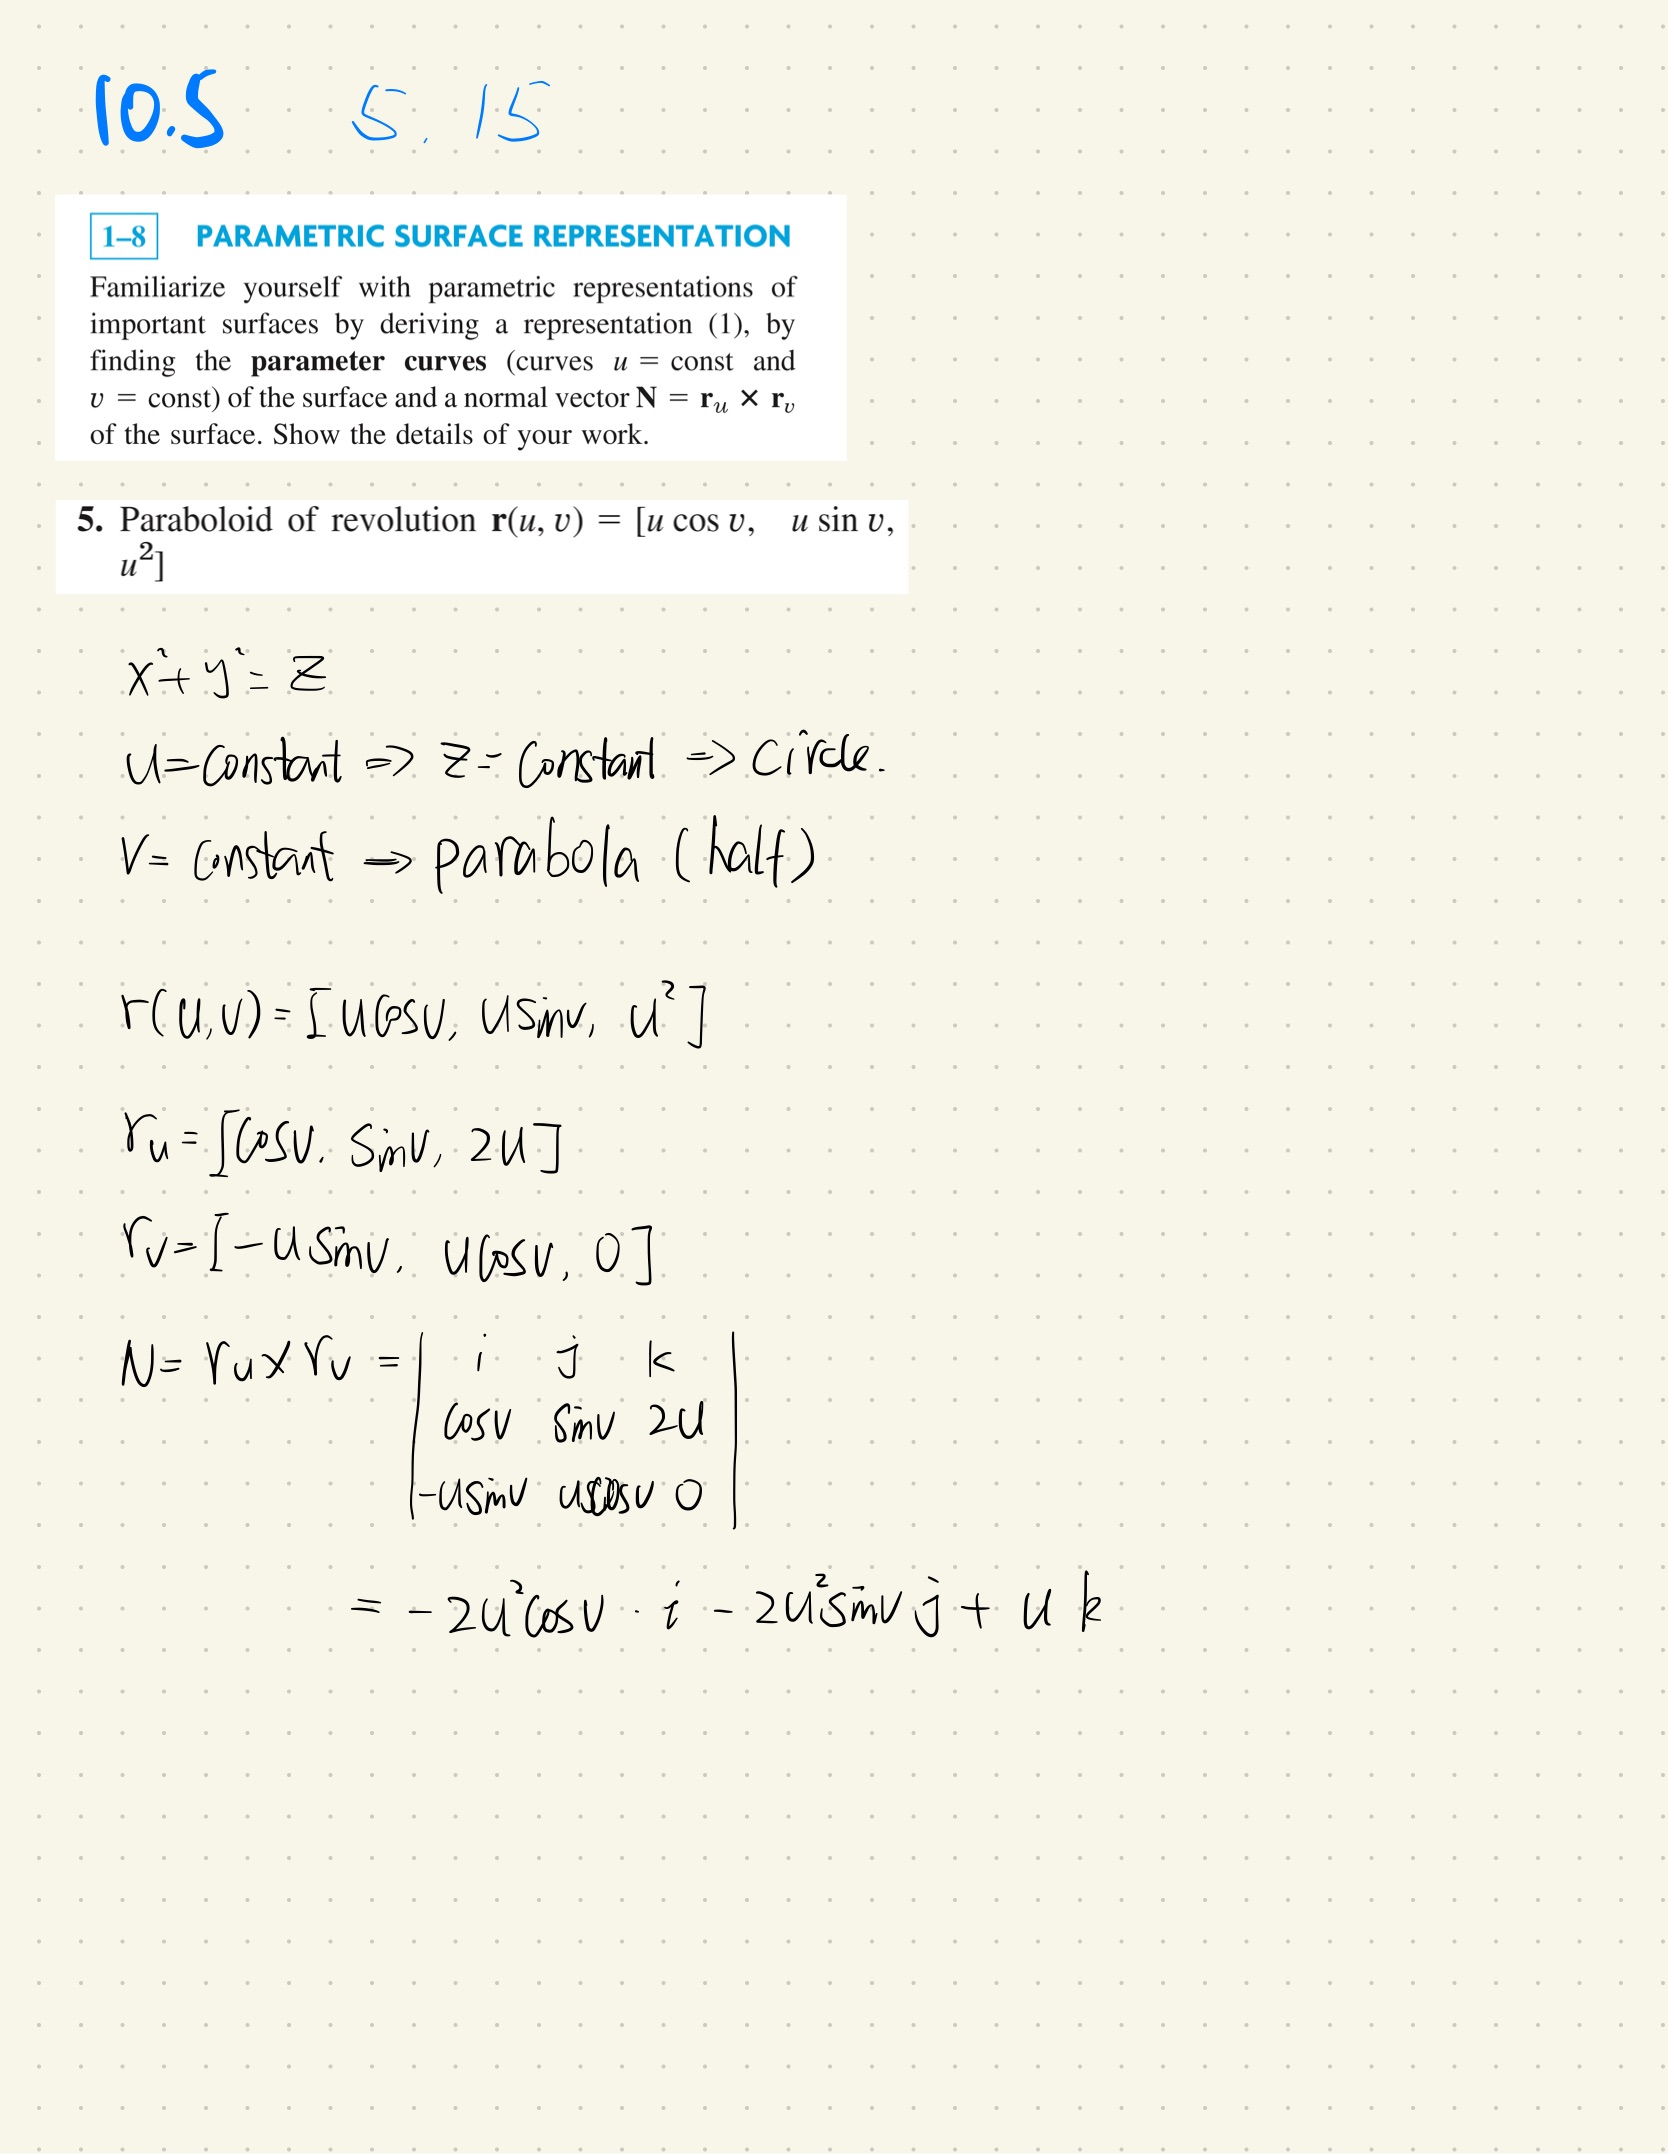 10.5 5. 15
1–8 PARAMETRIC SURFACE REPRESENTATION
Familiarize yourself with parametric representations of
important surfaces by deriving a representation (1), by
finding the parameter curves (curves u = const and
v = const) of the surface and a normal vector N = r_u × r_v
of the surface. Show the details of your work.
5. Paraboloid of revolution r(u, v) = [u cos v, u sin v,
u²]
x² + y² = z
u = constant => z = constant => circle.
v = constant => parabola (half)
r(u,v) = [u cosv, u sinv, u²]
r_u = [cosv. sinv, 2u]
r_v = [-u sinv, u cosv, 0]
N = r_u × r_v = | i j k |
| cosv sinv 2u |
| -u sinv u cosv 0 |
= - 2u² cosv · i - 2u² sinv j + u k